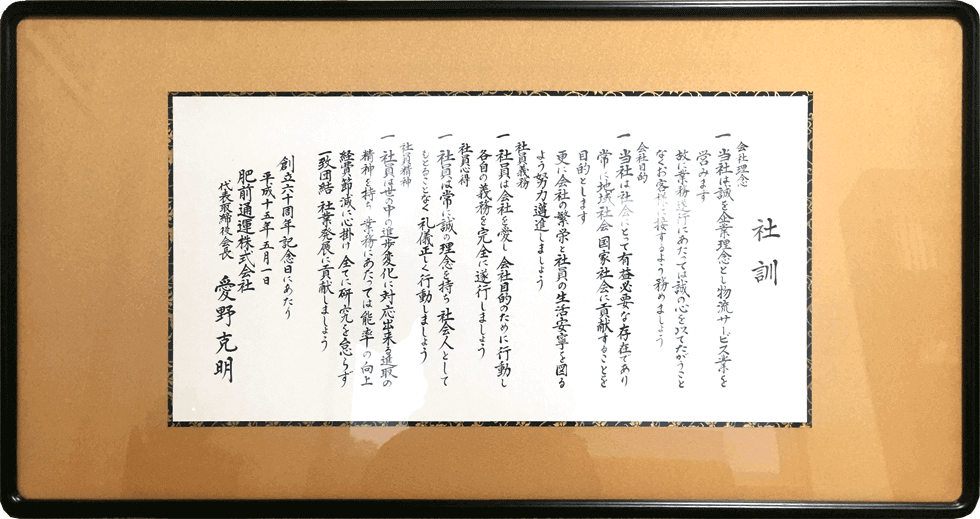 社訓
会社理念
一 当社は誠を企業理念とし物流サービス業を
営みます
故に業務遂行にあたっては誠の心を以てたがうこと
なくお客様に接するよう務めましょう
会社目的
一 当社は社会にとって有益必要な存在であり
常に地域社会 国家社会に貢献することを
目的とします
更に会社の繁栄と社員の生活安寧を図る
よう努力邁進しましょう
社員義務
一 社員は会社を愛し 会社目的のために行動し
各自の義務を完全に遂行しましょう
社員心得
一 社員は常に誠の理念を持ち 社会人として
もとることなく 礼儀正しく行動しましょう
社員精神
一 社員は世の中の進歩変化に対応出来る進取の
精神を持ち 業務にあたっては能率の向上
経費節減に心掛け 全てに研究を怠らず
一致団結 社業発展に貢献しましょう
創立六十周年記念日にあたり
平成十五年五月一日
肥前通運株式会社
代表取締役会長 愛野克明